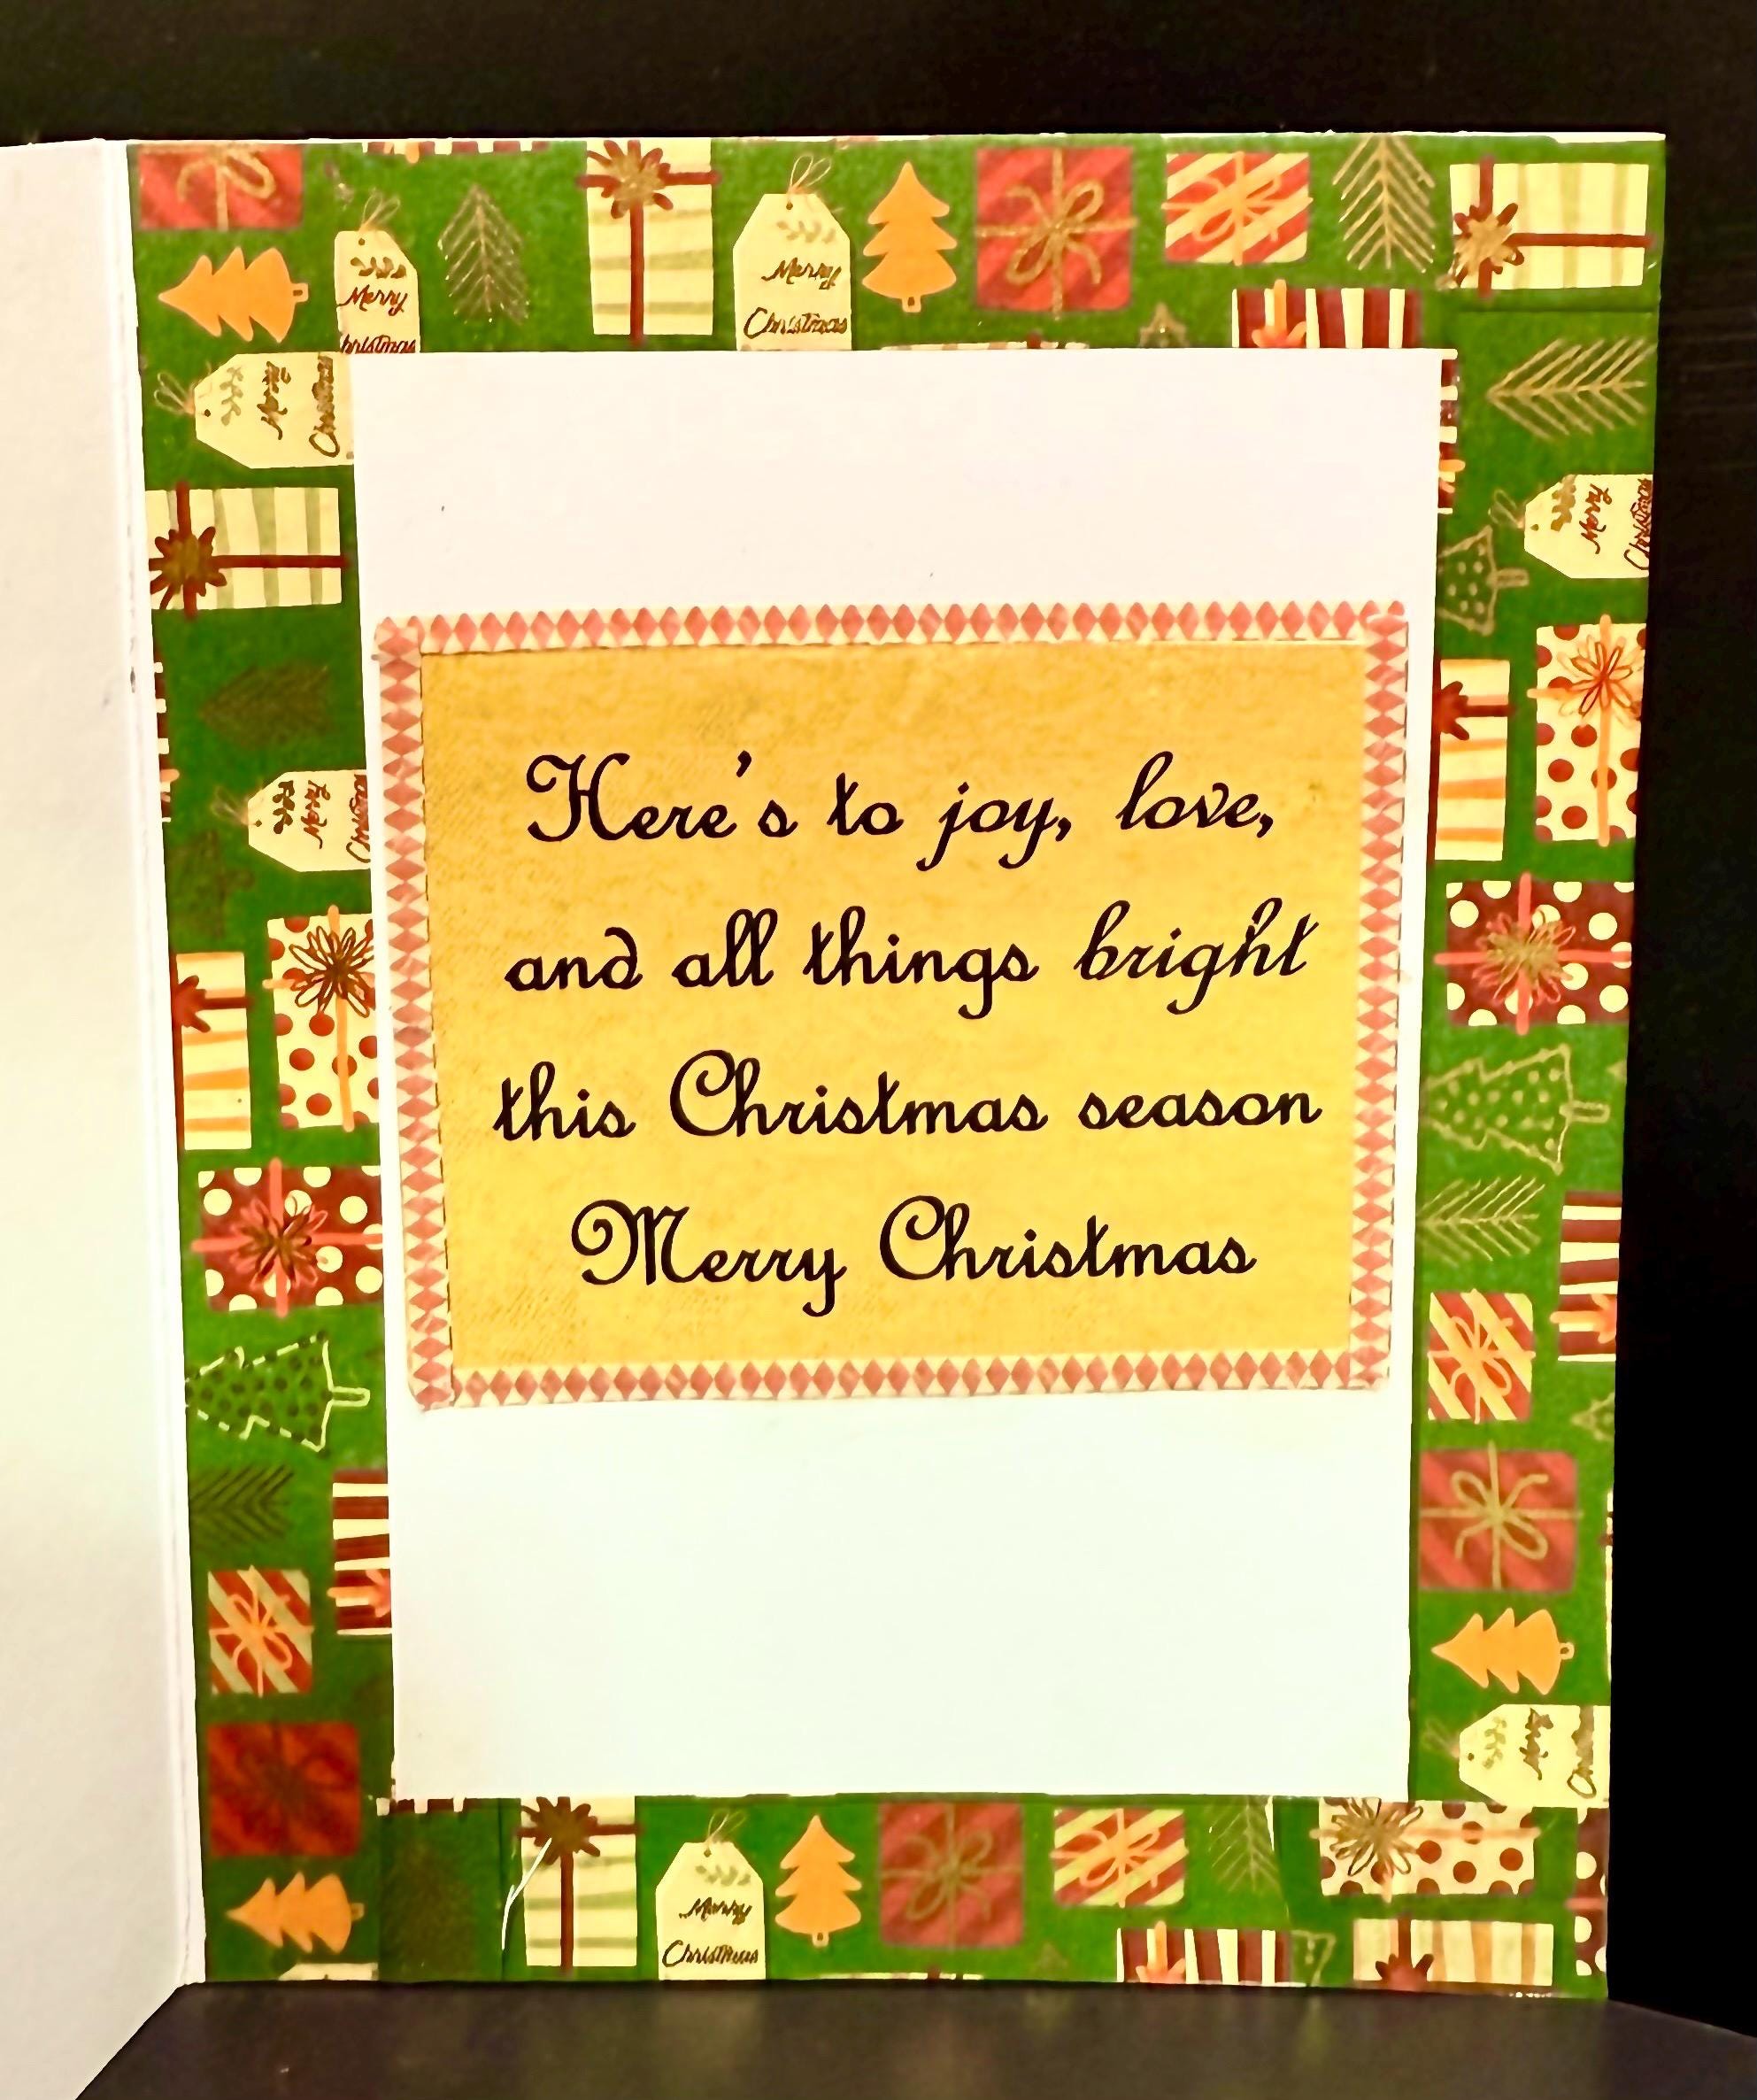 Merry
Christmas
Merry
Christmas
Merry
Christmas
Merry
Christmas
Here's to joy, love,
and all things bright
this Christmas season
Merry Christmas
Merry
Christmas
Merry
Christmas
Merry
Christmas